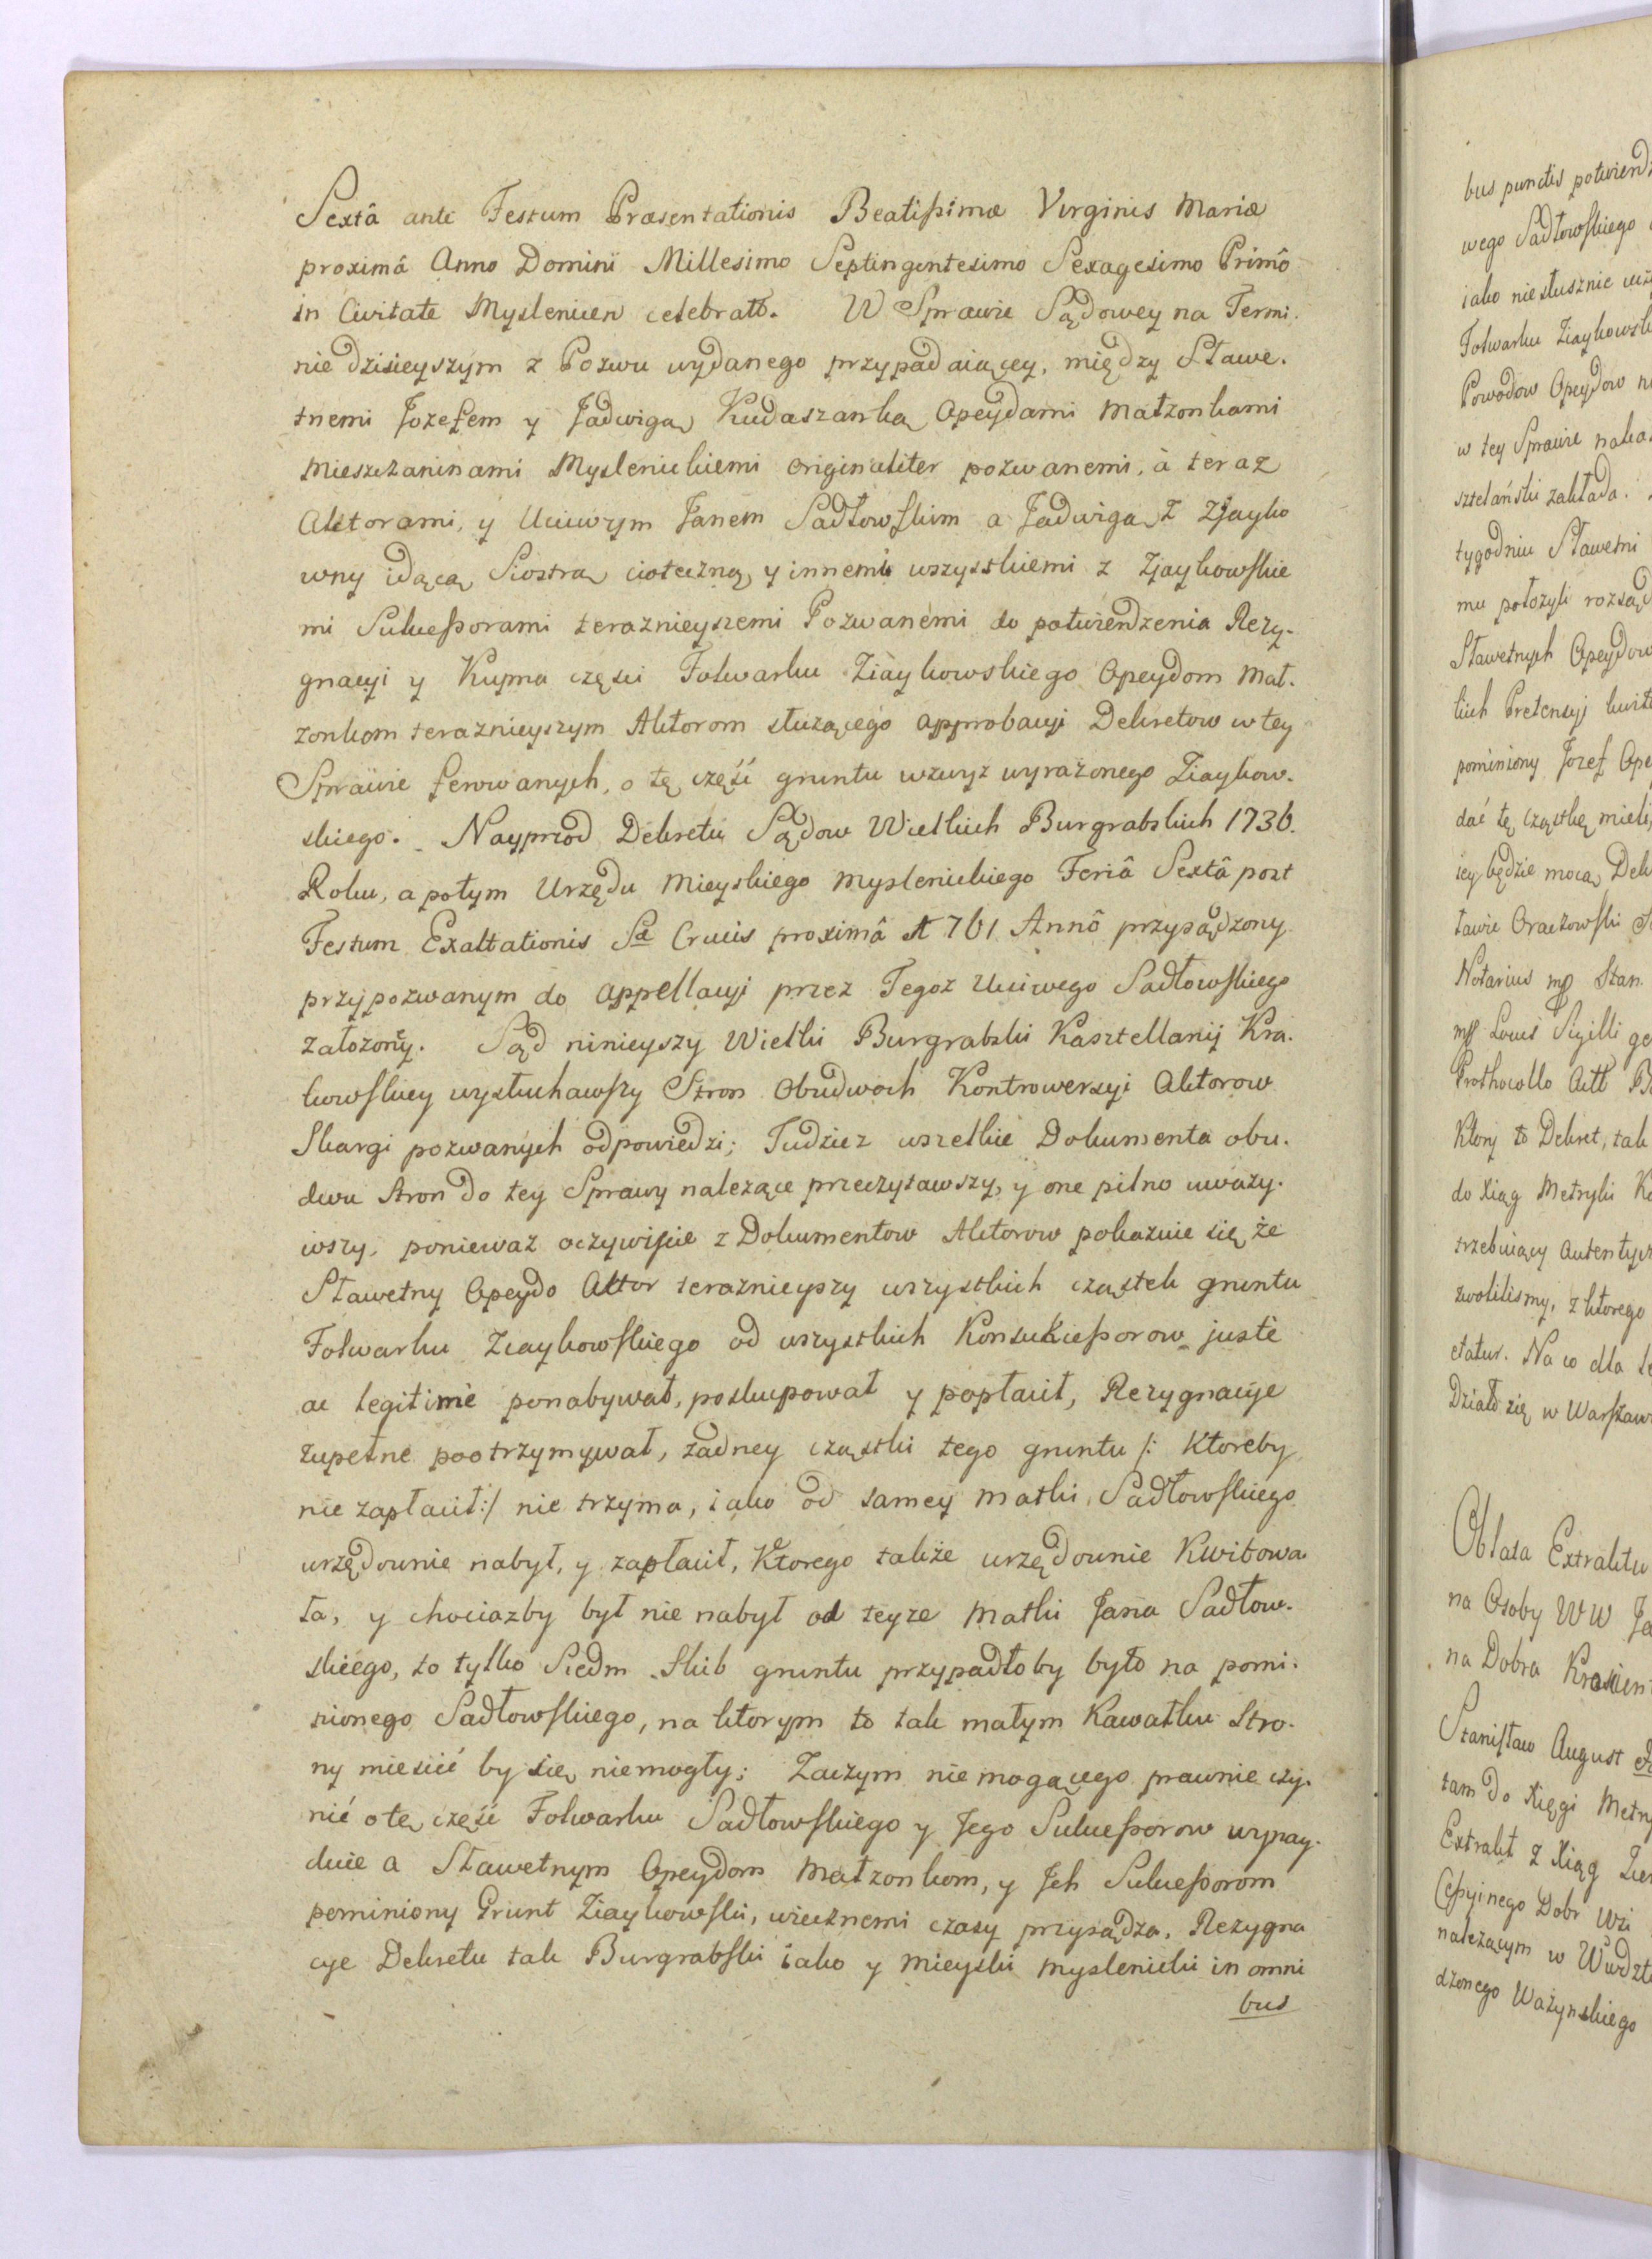 Sextâ ante Festum Præsentationis Beatissimæ Virginis Mariæ
proximâ Anno Domini Millesimo Septingentesimo Sexagesimo Primô
in Civitate Myslenicen celebratô. W Sprawie Sądowey na Termi.
nie dzisieyszym z Pozwu wydanego przypadaiącey, między Sławe.
tnemi Jozefem y Jadwigą Kudaszanką Opeydami Małzonkami
Mieszczaninami Myslenickiemi originaliter pozwanemi, à teraz
Aktorami, y Uciwym Janem Sadłowskim a Jadwigą z Zjayko
wny idącą Siostrą cioteczną, y innemi wszystkiemi z Zjaykowskie
mi Sukcessorami teraznieyszemi Pozwanemi do potwierdzenia Rezy-
gnacyi y Kupna częsci Folwarku Ziaykowskiego Opeydom Mał.
zonkom teraznieyszym Aktorom słuzącego approbacyi Dekretow w tey
Sprawie ferowanych, o tę część gruntu wzwyz wyrażonego Ziaykow.
skiego. Nayprzod Dekretu Sądow Wielkich Burgrabskich 1736.
Roku, a potym Urzędu Mieyskiego Myslenickiego Feriâ Sextâ post
Festum Exaltationis Sæ Crucis proximâ 1761 Annô przysądzony
przypozwanym do appellacyi przez Tegoz Uciwego Sadłowskiego
załozony. Sąd ninieyszy Wielki Burgrabski Kasztellanij Kra.
kowskiey wysłuchawszy Stron Obudwoch Kontrowersyi Aktorow
Skargi pozwanych odpowiedzi; Tudziez wszelkie Dokumenta obu.
dwu stron do tey Sprawy nalezące przeczytawszy, y one pilno uwazy.
wszy, poniewaz oczywiscie z Dokumentow Aktorow pokazuie się że
Sławetny Opeydo Aktor teraznieyszy wszystkich cząstek gruntu
Folwarku Ziaykowskiego od wszystkich Konsukcessorow justè
ac legitimè ponabywał, poskupował y popłacił, Rezygnacye
zupełne pootrzymywał, żadney cząstki tego gruntu /: Ktoreby
nie zapłacił :/ nie trzyma, iako od samey Matki Sadłowskiego
urzędownie nabył, y zapłacił, Ktorego takze urzędownie Kwitowa
ła, y chociazby był nie nabył od teyze Matki Jana Sadłow.
skiego, to tylko Siedm Skib gruntu przypadłoby było na pomi.
nionego Sadłowskiego, na ktorym to tak małym Kawałku Stro.
ny miesić by się niemogły; Zaczym nie mogącego prawnie czy.
nić o tę częsć Folwarku Sadłowskiego y Jego Sukcessorow
a Sławetnym Opeydom Małzonkom, y Jch Sukcessorom
pominiony Grunt Ziaykowski, wiecznemi czasy przysądza, Rezygna
cye Dekretu tak Burgrabski iako y Mieyski Myslenicki in omni
bus
bus punctis potwierdz
wego Sadłowskiego
iako niesłusznie
Folwarku Ziaykowsk
Powodow Opeydow
w tey Sprawie naka
sztelański zakłada.
tygodniu Sławetni
mu położyli rozsąd
Sławetnych Opeydow
kich Pretensyi kwit
pominiony Jozef Ope
dać tę cząstkę, miele
iey będzie mocą Dek
Notarius mp Stan.
mp Locus Sigilli
Prothocollo Actt
Ktory to Dekret, tak
do Xiąg Metryki
trzebuiący autentycz
zwolilismy, z ktorego
etatur. Na co dla
Działo się w Warszaw
Oblata Extraktu
na Osoby WW
na Dobra
Stanisław August
tam do Xięgi Metry
Extrakt z Xiąg
Cessyinego Dobr Wsi
nalezącym w
dzonego Wazynskiego